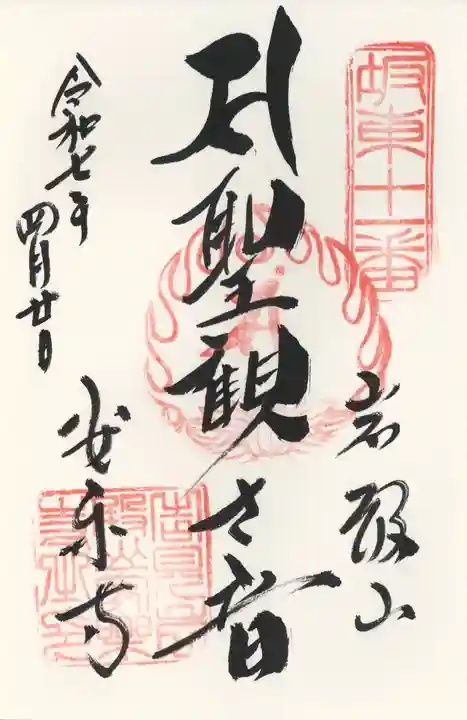 坂東十一番
岩殿山
聖観世音
安楽寺
令和七年
四月廿日